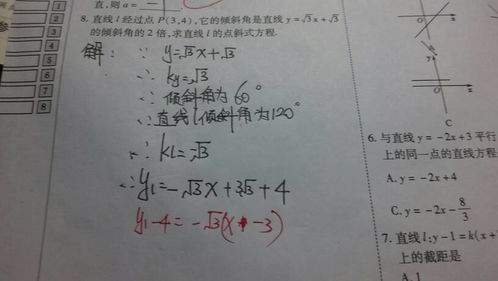 直,则a=
1
2
3
4
5
6
7
8
8. 直线l经过点P(3,4),它的倾斜角是直线y=√3x+√3
的倾斜角的2倍,求直线l的点斜式方程.
解: ∵ y=√3x+√3
∴ ky=√3
∴ 倾斜角为60°
∴ 直线l倾斜角为120°
∴ kl=-√3
∴ y₁=-√3x+3√3+4
y₁-4=-√3(x-3)
O
x
y
O
x
C
6. 与直线y=-2x+3平行
上的同一点的直线方程
A. y=-2x+4
C. y=-2x-8/3
7. 直线l:y-1=k(x+
上的截距是
A. 1